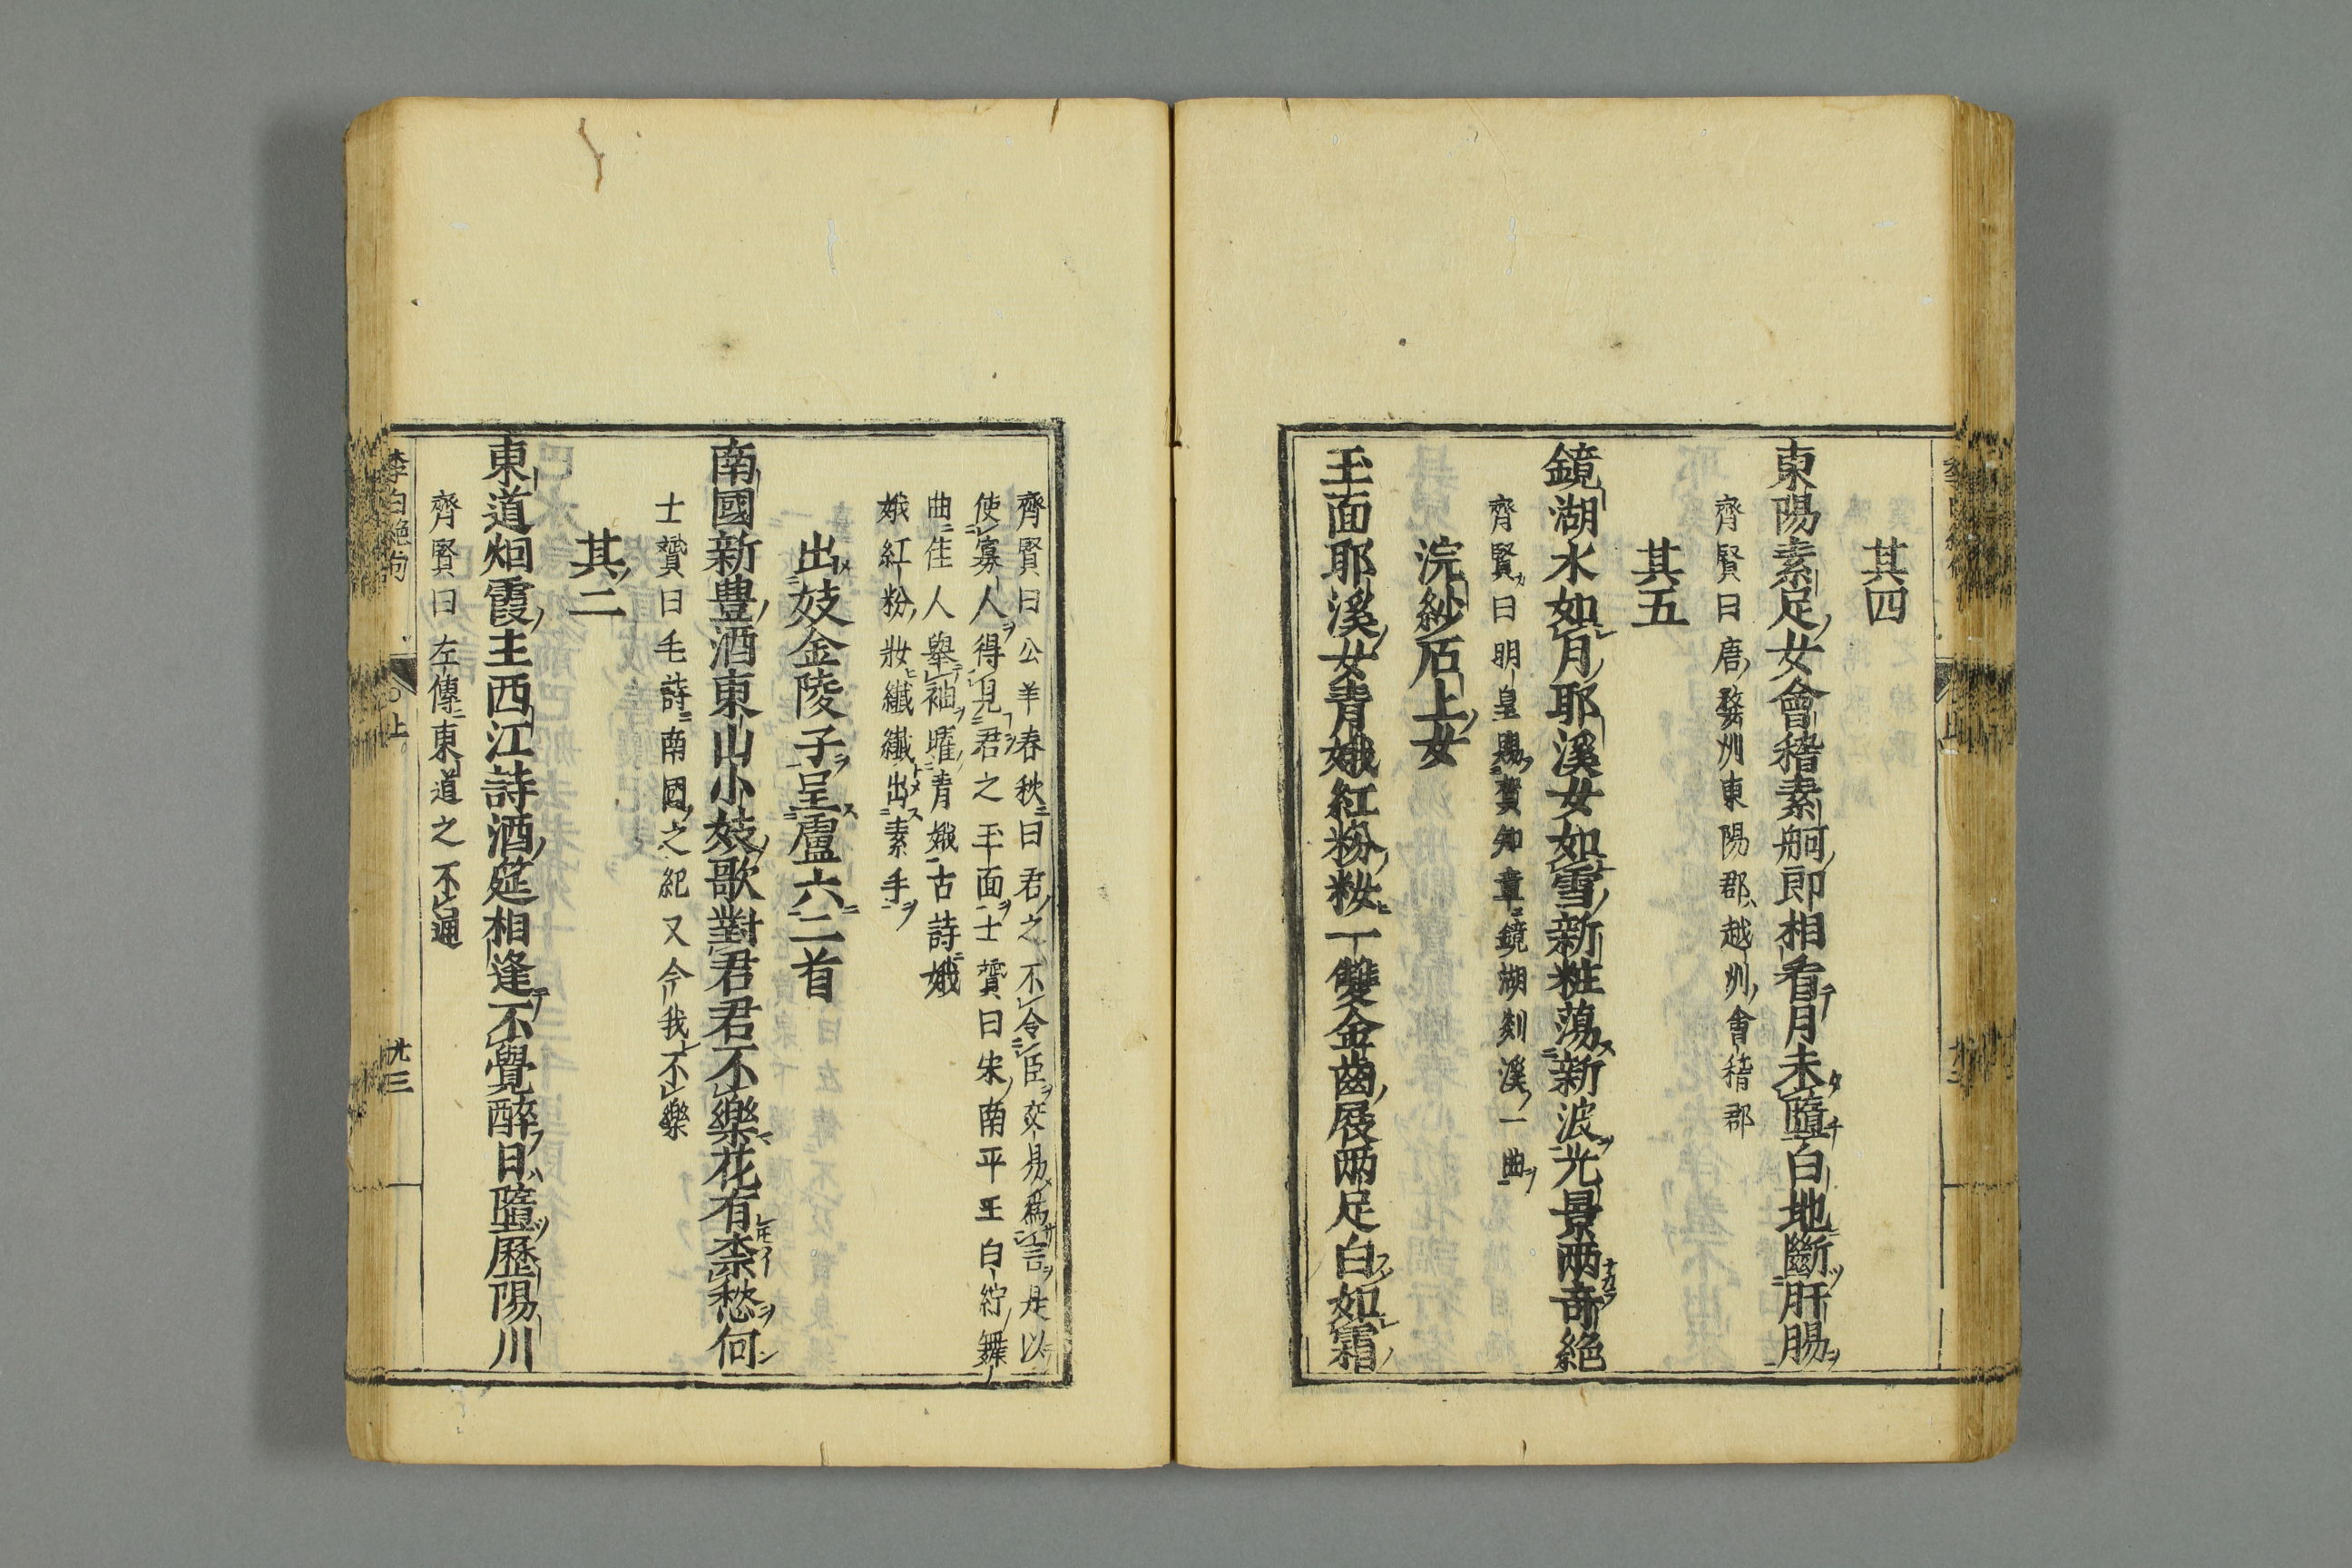 其四
東陽素足女會稽素舸郎相看月未墮白地斷肝腸
齊賢曰唐婺州東陽郡越州會稽郡
其五
鏡湖水如月耶溪女如雪新粧蕩新波光景兩奇絕
齊賢曰明皇賜賀知章鏡湖剡溪一曲
浣紗石上女
玉面耶溪女青娥紅粉粧一雙金齒屐兩足白如霜
齊賢曰公羊春秋曰君之不令臣交易為言是以
使寡人得見君之玉面士贇曰宋南平王白紵舞
曲佳人舉袖曜青娥古詩娥
娥紅粉妝纖纖出素手
出妓金陵子呈盧六二首
南國新豊酒東山小妓歌對君君不樂花有柰愁何
士贇曰毛詩南國之紀又今我不樂
其二
東道烟霞主西江詩酒筵相逢不覺醉日墮歷陽川
齊賢曰左傳東道之不通
李白絕句
上
廿三